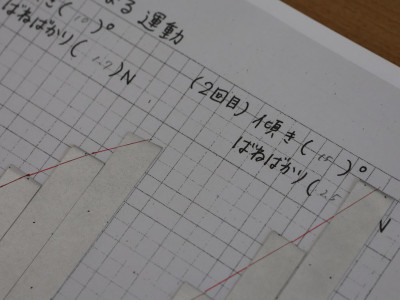 よる運動
き(10)°
ばねばかり(1.7)N
(2回目)傾き(15)°
ばねばかり(2.5 N